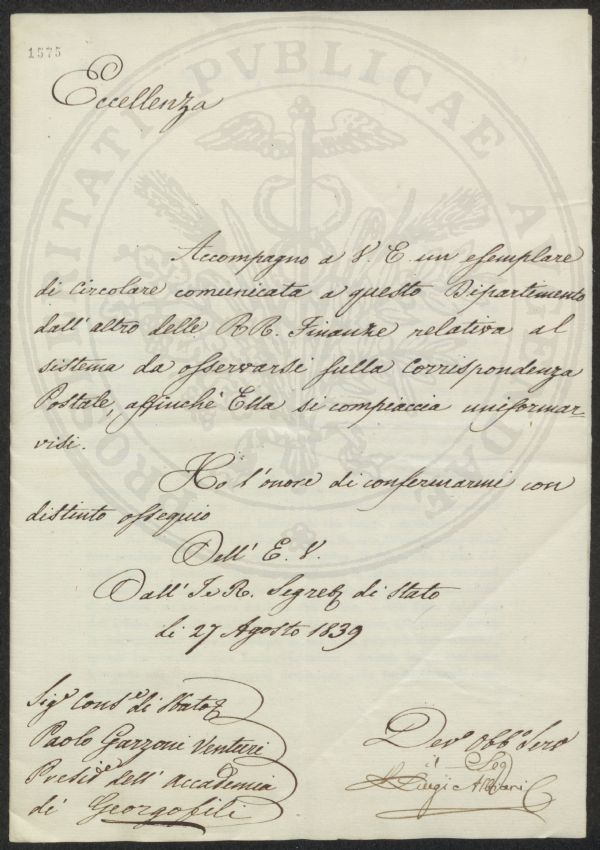 1575
Eccellenza
Accompagno a V. E. un esemplare
di Circolare comunicata a questo Dipartimento
dall'altro delle RR. Finanze relativa al
sistema da osservarsi sulla Corrispondenza
Postale, affinchè Ella si compiaccia uniformar-
visi.
Ho l'onore di confermarmi con
distinto ossequio
Dell' E. V.
Dall' I e R. Segret di Stato
li 27 Agosto 1839
Sig.e Cons.e di Stato
Paolo Garzoni Venturi
Presid.e dell'Accademia
di Georgofili
Dev.o Obb.o Serv
il Seg
Luigi Albiani
PROSPERITATI PVBLICAE AVGENDAE